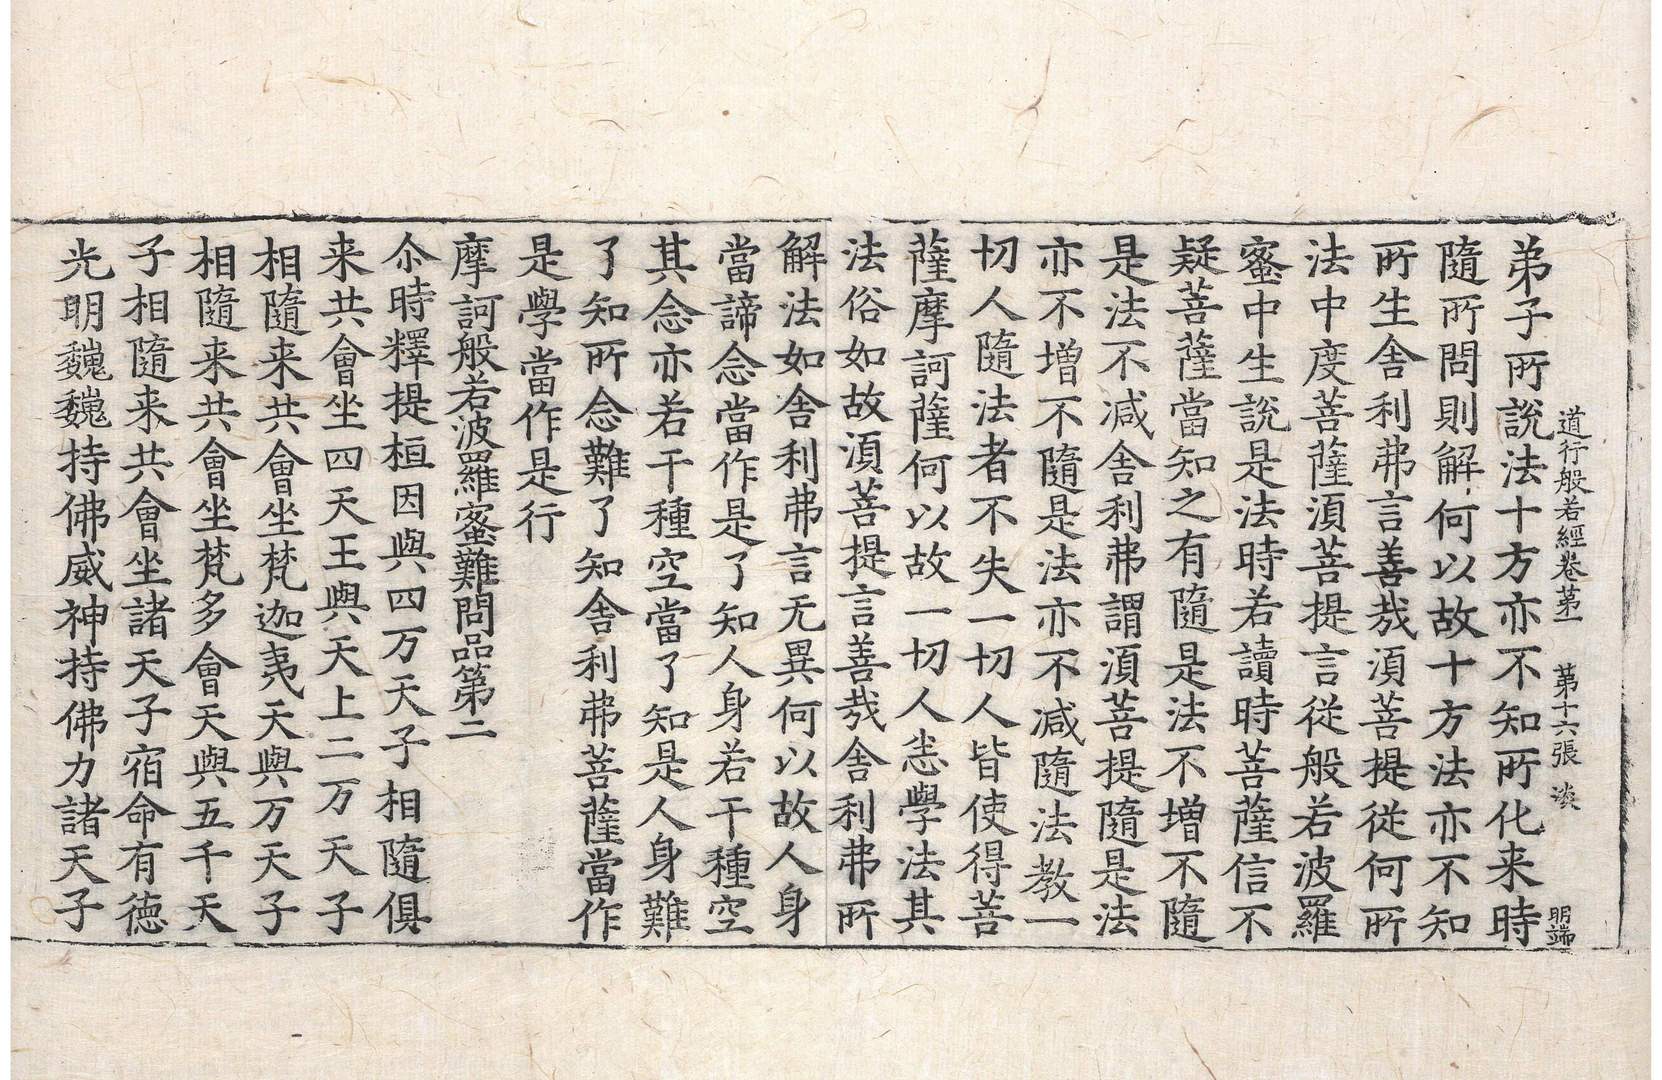 道行般若經卷苐一 苐十六張 淡
明端
弟子所說法十方亦不知所化来時
隨所問則解何以故十方法亦不知
所生舎利弗言善㢤湏菩提從何所
法中度菩薩湏菩提言從般若波羅
蜜中生說是法時若讀時菩薩信不
疑菩薩當知之有隨是法不增不隨
是法不减舎利弗謂湏菩提隨是法
亦不增不隨是法亦不减隨法教一
切人隨法者不失一切人皆使得菩
薩摩訶薩何以故一切人悉學法其
法俗如故湏菩提言善㢤舎利弗所
解法如舎利弗言无異何以故人身
當諦念當作是了知人身若干種空
其念亦若干種空當了知是人身難
了知所念難了知舎利弗菩薩當作
是學當作是行
摩訶般若波羅蜜難問品第二
尒時釋提桓因與四万天子相隨俱
来共會坐四天王與天上二万天子
相隨来共會坐梵迦夷天與万天子
相隨来共會坐梵多會天與五千天
子相隨来共會坐諸天子宿命有徳
光明巍巍持佛威神持佛力諸天子